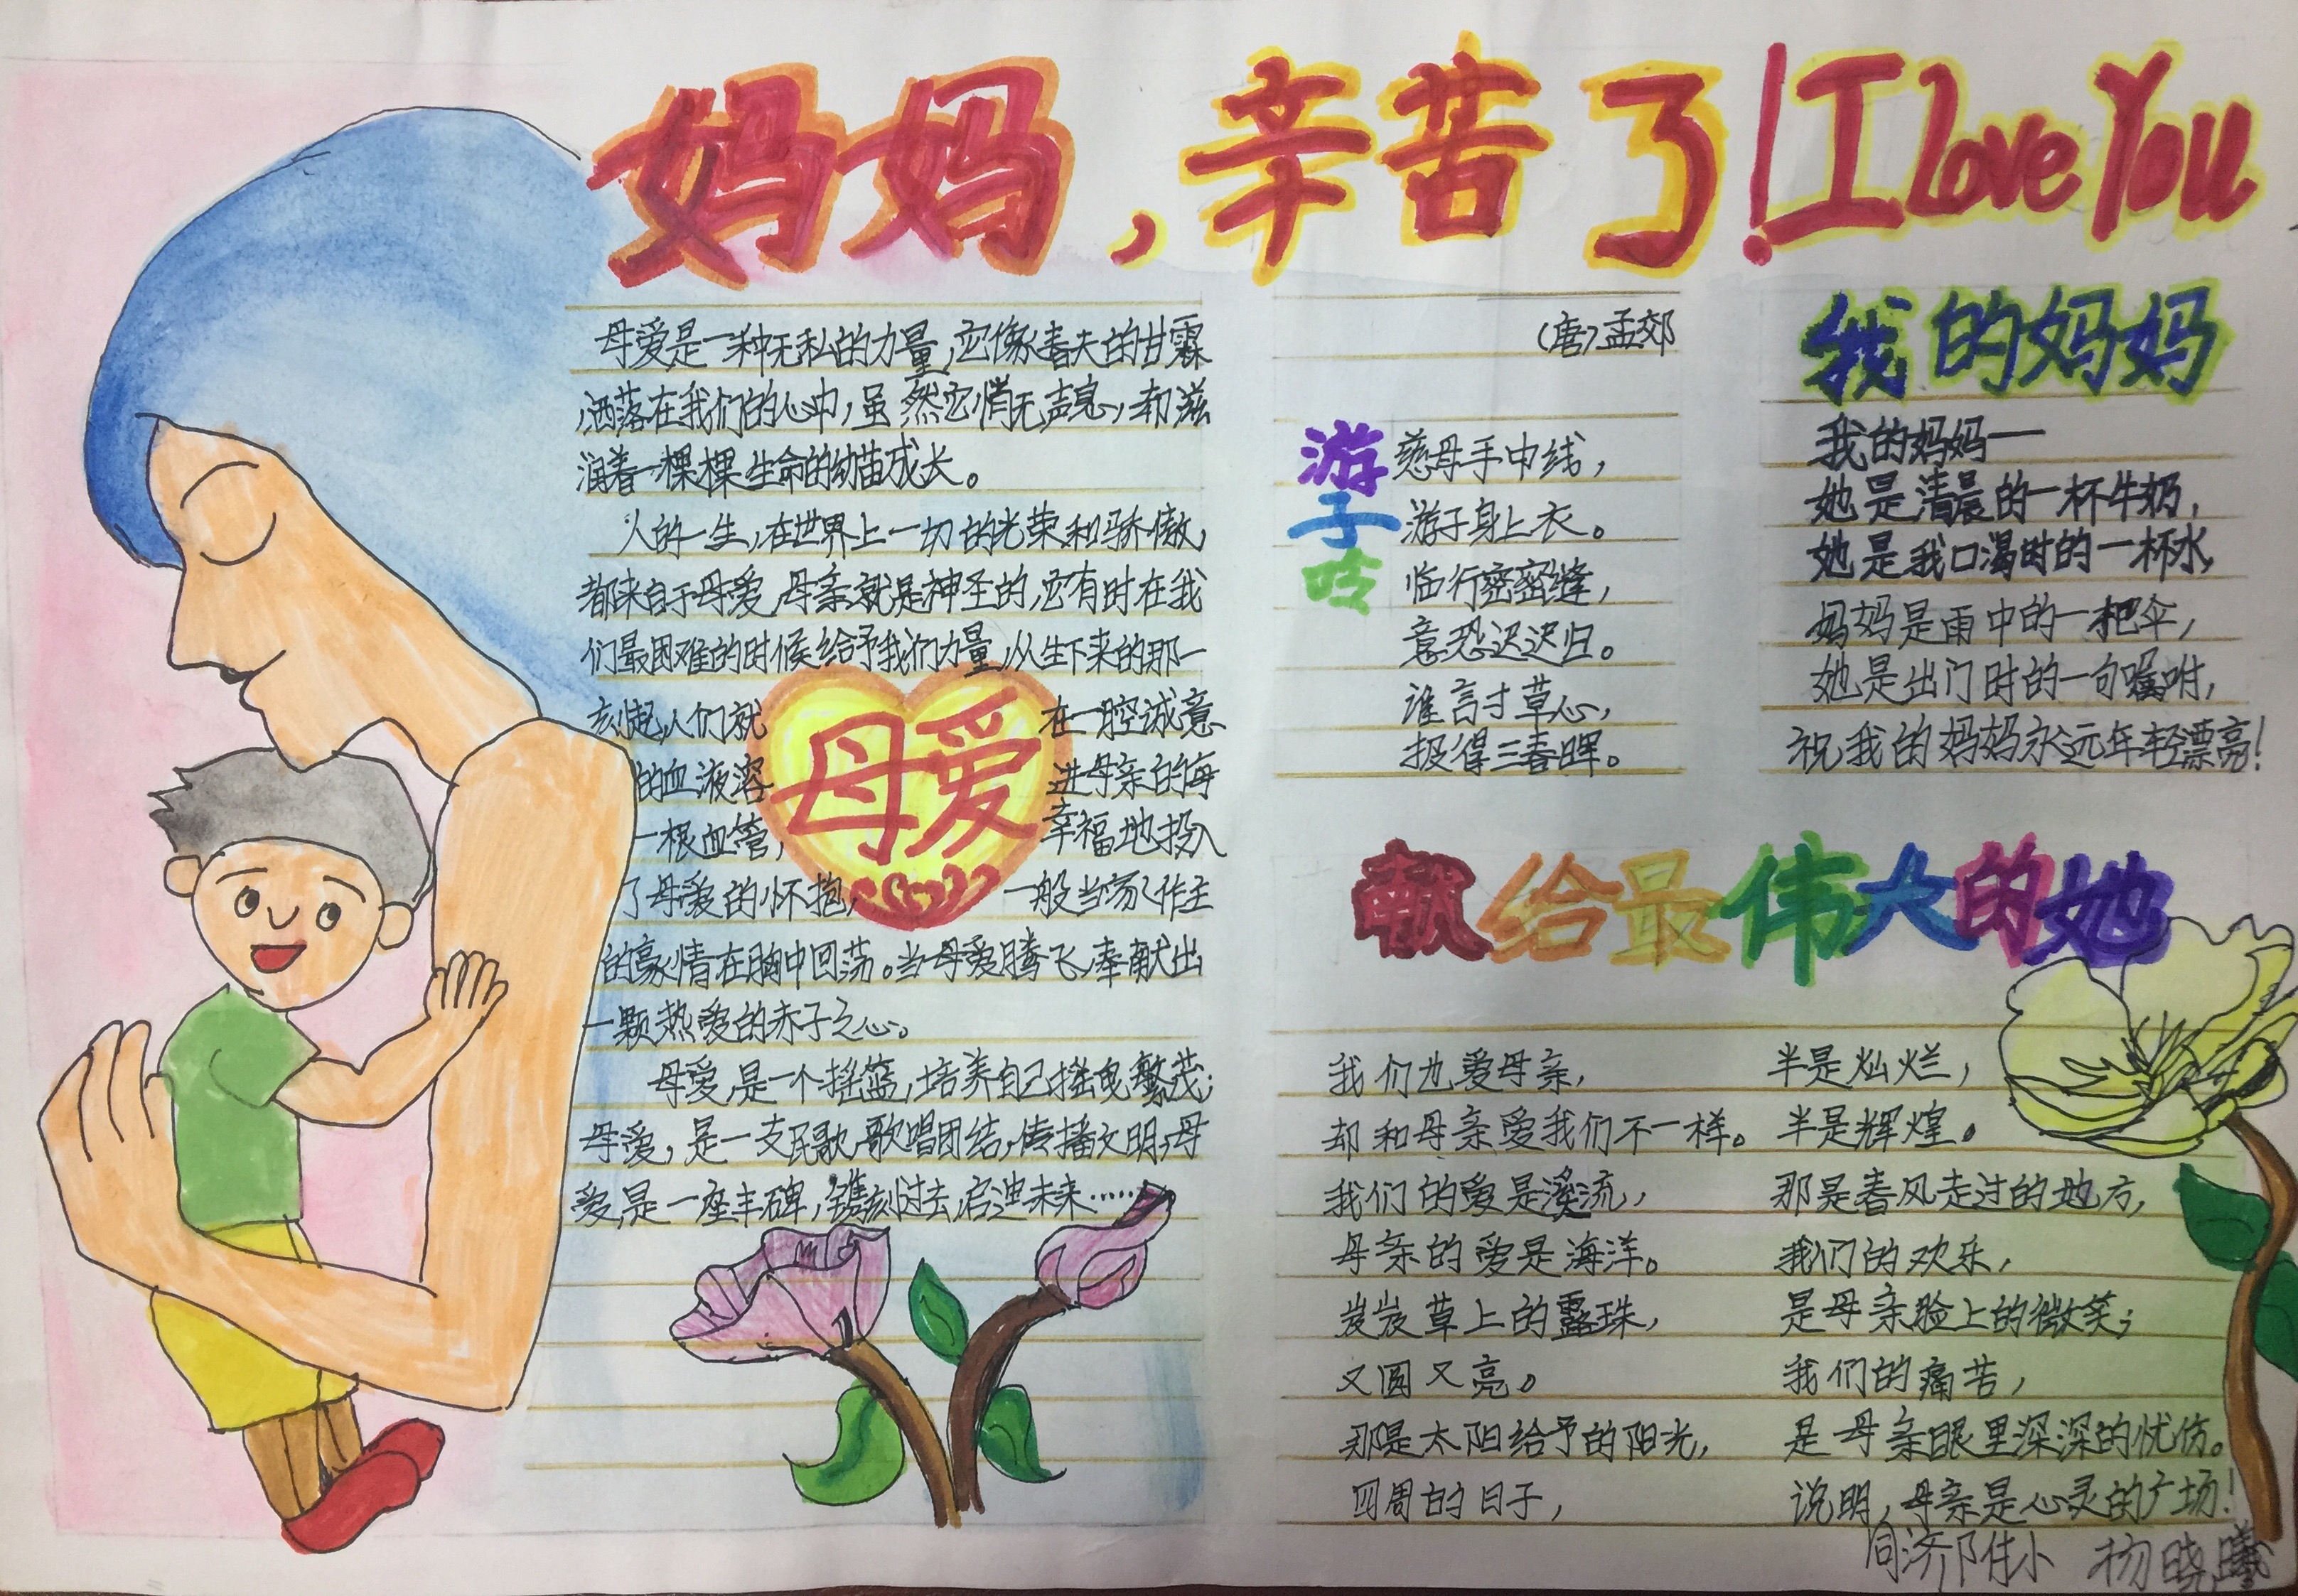 妈妈，辛苦了！I love You
母爱是一种无私的力量，它像春天的甘霖
洒落在我们的心中，虽然它悄无声息，却滋
润着一棵棵生命的幼苗成长。
人的一生，在世界上一切的光荣和骄傲，
都来自于母爱，母亲就是神圣的，它有时在我
们最困难的时候给予我们力量，从生下来的那一
刻起，人们就在一腔诚意
的血液溶进母亲的每
一根血管，幸福地投入
了母爱的怀抱，一般当家作主
的豪情在胸中回荡。当母爱腾飞，奉献出
一颗热爱的赤子之心。
母爱，是一个摇篮，培养自己摇曳繁茂；
母爱，是一支民歌，歌唱团结，传播文明；母
爱，是一座丰碑，镌刻过去，启迪未来……
母爱
（唐）孟郊
游子吟
慈母手中线，
游子身上衣。
临行密密缝，
意恐迟迟归。
谁言寸草心，
报得三春晖。
我的妈妈
我的妈妈——
她是清晨的一杯牛奶，
她是我口渴时的一杯水，
妈妈是雨中的一把伞，
她是出门时的一句嘱咐，
祝我的妈妈永远年轻漂亮！
献给最伟大的她
我们也爱母亲，
却和母亲爱我们不一样。
我们的爱是溪流，
母亲的爱是海洋。
岌岌草上的露珠，
又圆又亮。
那是太阳给予的阳光，
四周的日子，
半是灿烂，
半是辉煌。
那是春风走过的地方，
我们的欢乐，
是母亲脸上的微笑；
我们的痛苦，
是母亲眼里深深的忧伤。
说明，母亲是心灵的广场！
同济附小 杨晓曦